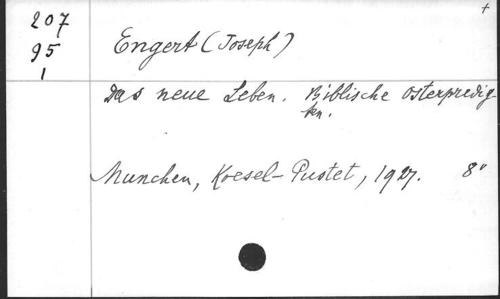 207
95
1
+
Engert (Joseph)
Das neue Leben. Biblische Osterpredig-
ten.
Munchen, Koesel-Pustet, 1927. 8°